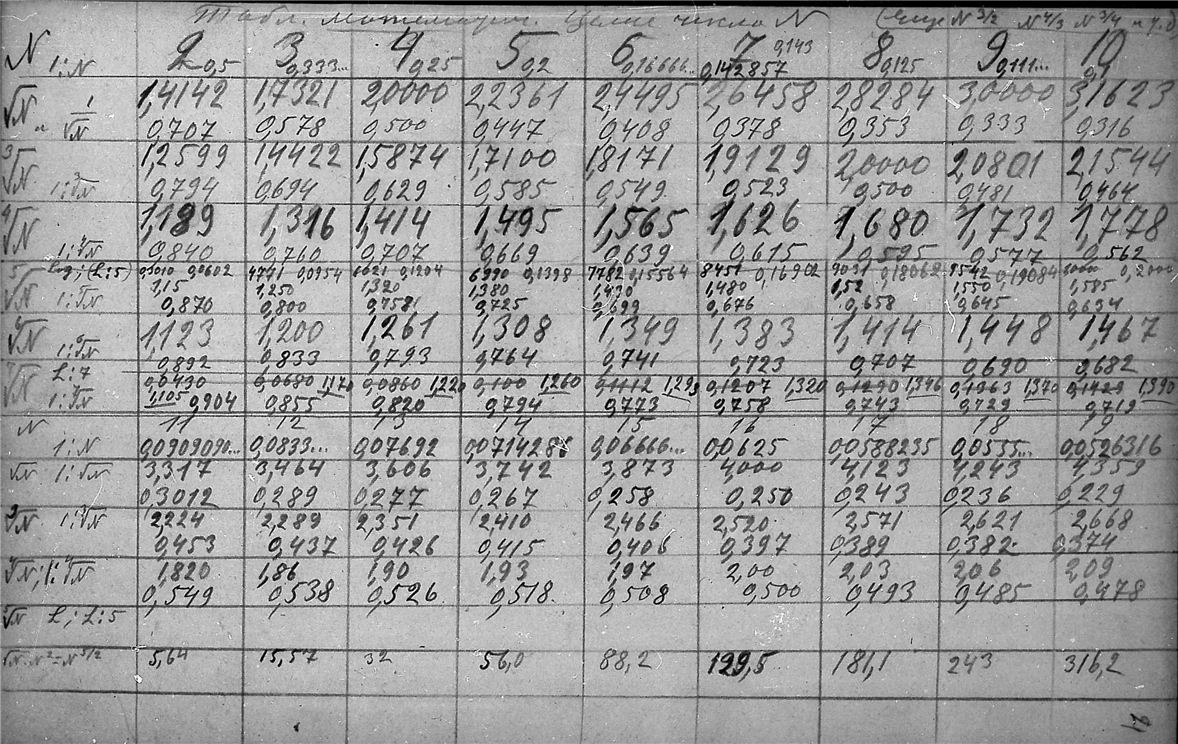 Табл. математич. Целые числа N (еще N 3/2 N 4/3 N 3/4 и т.д)
N 1:N 2 0,5 3 0,333... 4 0,25 5 0,2 6 0,16666... 7 0,143 0,142857 8 0,125 9 0,111... 10 0,1
√N 1,4142 1,7321 2,0000 2,2361 2,4495 2,6458 2,8284 3,0000 3,1623
и 1/√N 0,707 0,578 0,500 0,447 0,408 0,378 0,353 0,333 0,316
3√N 1,2599 1,4422 1,5874 1,7100 1,8171 1,9129 2,0000 2,0801 2,1544
1:3√N 0,794 0,694 0,629 0,585 0,549 0,523 0,500 0,481 0,464
4√N 1,189 1,316 1,414 1,495 1,565 1,626 1,680 1,732 1,778
1:4√N 0,840 0,760 0,707 0,669 0,639 0,615 0,595 0,577 0,562
Log; (L:5) 0,3010 0,0602 4771 0,0954 6021 0,1204 6990 0,1398 7782 0,15564 8451 0,16902 9031 0,18062 9542 0,19084 0,2000
5√N 1,15 1,250 1,320 1,380 1,430 1,480 1,52 1,550 1,585
1:5√N 0,870 0,800 0,7581 0,725 0,699 0,676 0,658 0,645 0,634
6√N 1,123 1,200 1,261 1,308 1,349 1,383 1,414 1,448 1,467
1:6√N 0,892 0,833 0,793 0,764 0,741 0,723 0,707 0,690 0,682
7√N L:7 0,0430 0,0680 1,170 0,0860 1,220 0,100 1,260 0,1112 1,293 0,1207 1,320 0,1290 1,346 0,1363 1,370 0,1429 1,390
1:7√N 1,105 0,904 0,855 0,820 0,794 0,773 0,758 0,743 0,729 0,719
N 11 12 13 14 15 16 17 18 19
1:N 0,0909090... 0,0833... 0,07692 0,0714286 0,06666... 0,0625 0,0588235 0,0555... 0,0526316
√N 1:√N 3,317 3,464 3,606 3,742 3,873 4,000 4,123 4,243 4,359
0,3012 0,289 0,277 0,267 0,258 0,250 0,243 0,236 0,229
3√N 1:3√N 2,224 2,289 2,351 2,410 2,466 2,520 2,571 2,621 2,668
0,453 0,437 0,426 0,415 0,406 0,397 0,389 0,382 0,374
4√N; 1:4√N 1,820 1,86 1,90 1,93 1,97 2,00 2,03 2,06 2,09
0,549 0,538 0,526 0,518 0,508 0,500 0,493 0,485 0,478
5√N L; L:5
√N·N²=N5/2 5,64 15,57 32 56,0 88,2 129,5 181,1 243 316,2